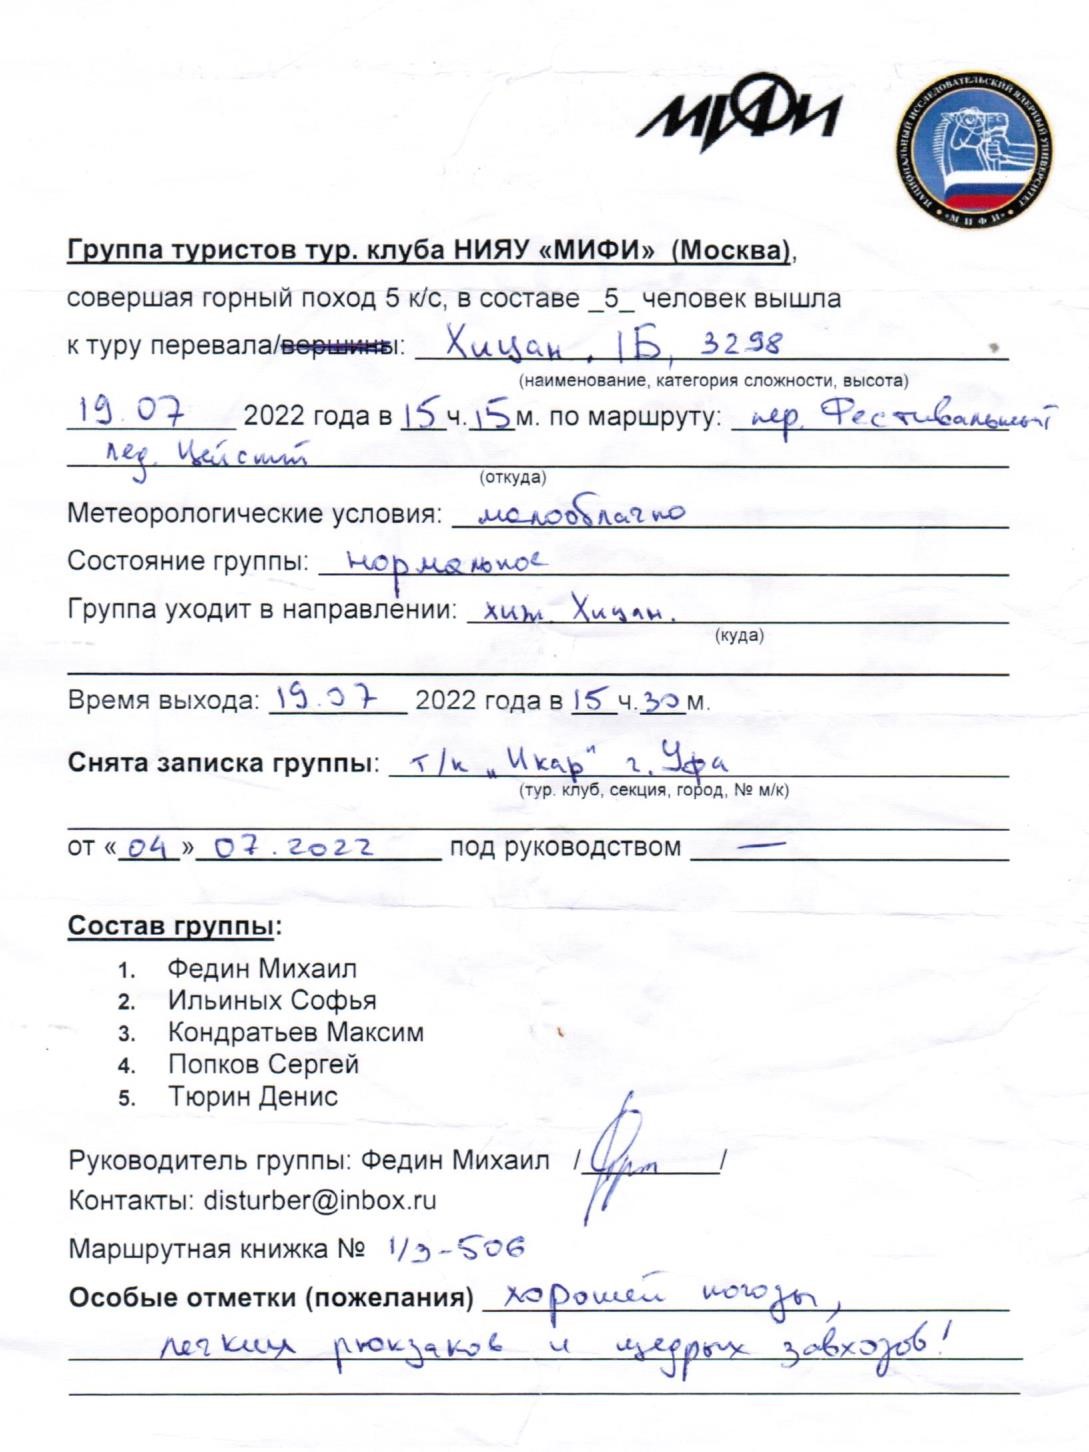 МИФИ
НАЦИОНАЛЬНЫЙ ИССЛЕДОВАТЕЛЬСКИЙ ЯДЕРНЫЙ УНИВЕРСИТЕТ
«МИФИ»
Группа туристов тур. клуба НИЯУ «МИФИ» (Москва),
совершая горный поход 5 к/с, в составе _5_ человек вышла
к туру перевала/вершины: Хицан, 1Б, 3298
(наименование, категория сложности, высота)
19.07 2022 года в 15 ч. 15 м. по маршруту: пер. Фестивальный
лед. Цейский
(откуда)
Метеорологические условия: малооблачно
Состояние группы: нормальное
Группа уходит в направлении: хиж. Хицан.
(куда)
Время выхода: 19.07 2022 года в 15 ч. 30 м.
Снята записка группы: т/к "Икар" г. Уфа
(тур. клуб, секция, город, № м/к)
от «04» 07.2022 под руководством —
Состав группы:
1. Федин Михаил
2. Ильиных Софья
3. Кондратьев Максим
4. Попков Сергей
5. Тюрин Денис
Руководитель группы: Федин Михаил / /
Контакты: disturber@inbox.ru
Маршрутная книжка № 1/3-506
Особые отметки (пожелания) хорошей погоды,
легких рюкзаков и щедрых завхозов!